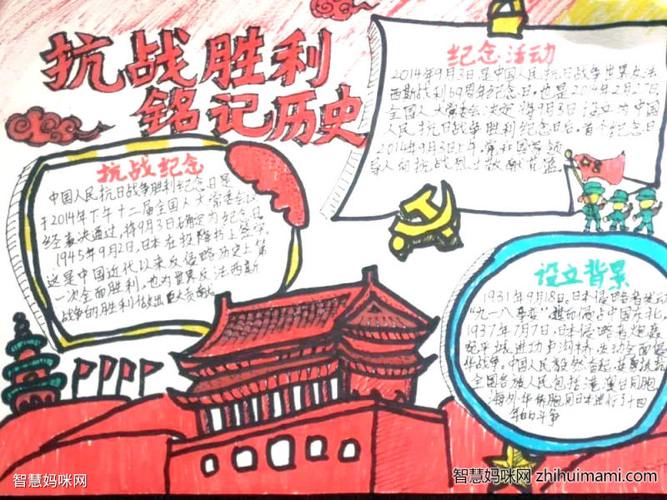 抗战胜利
铭记历史
纪念活动
2014年9月3日是中国人民抗日战争世界反法
西斯战利69周年纪念日,也是2014年2月27日
全国人大常委会决定将9月3日设立为中国
人民抗日战争胜利纪念日后,首个纪念日
2014年9月3日上午,党和国
导人向抗战烈士敬献花篮
抗战纪念
中国人民抗日战争胜利纪念日是
于2014年下午十二届全国人大常委会
经表决通过,将9月3日确定为纪念日
1945年9月2日,日本在投降书上签字
这是中国近代以来反侵略历史上第
一次全面胜利,也为世界反法西斯
战争的胜利做出巨大贡献
设立背景
1931年9月18日,日本侵略者发动
"九一八事变",中国东北。
1937年7月7日,日本侵略者炮轰
宛平城进攻卢沟桥,发动全面侵
华战争。中国人民毅然奋起,
全国各族人民包括港澳台同胞
海外华侨同日本进行了十四
年的斗争
智慧妈咪网
智慧妈咪网 zhihuimami.com